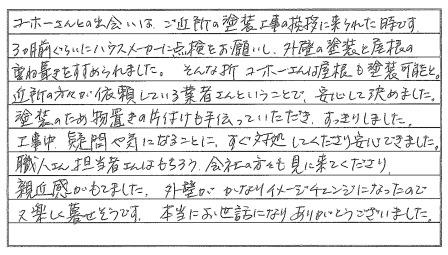 コーホーさんとの出会いは、ご近所の塗装工事の挨拶に来られた時です
3ヵ月前ぐらいにハウスメーカーに点検をお願いし、外壁の塗装と屋根の
重ね葺きをすすめられました。そんな折コーホーさんは屋根も塗装可能と。
近所の方々が依頼している業者さんということで、安心して決めました。
塗装のため物置きの片付けも手伝っていただき、すっきりしました。
工事中、疑問や気になることに、すぐ対処してくださり安心できました。
職人さん担当者さんはもちろう、会社の方々も見に来てくださり、
親近感がもてました。外壁が かなりイメージチェンジになったので
又楽しく暮せそうです。本当にお世話になりありがとうございました。